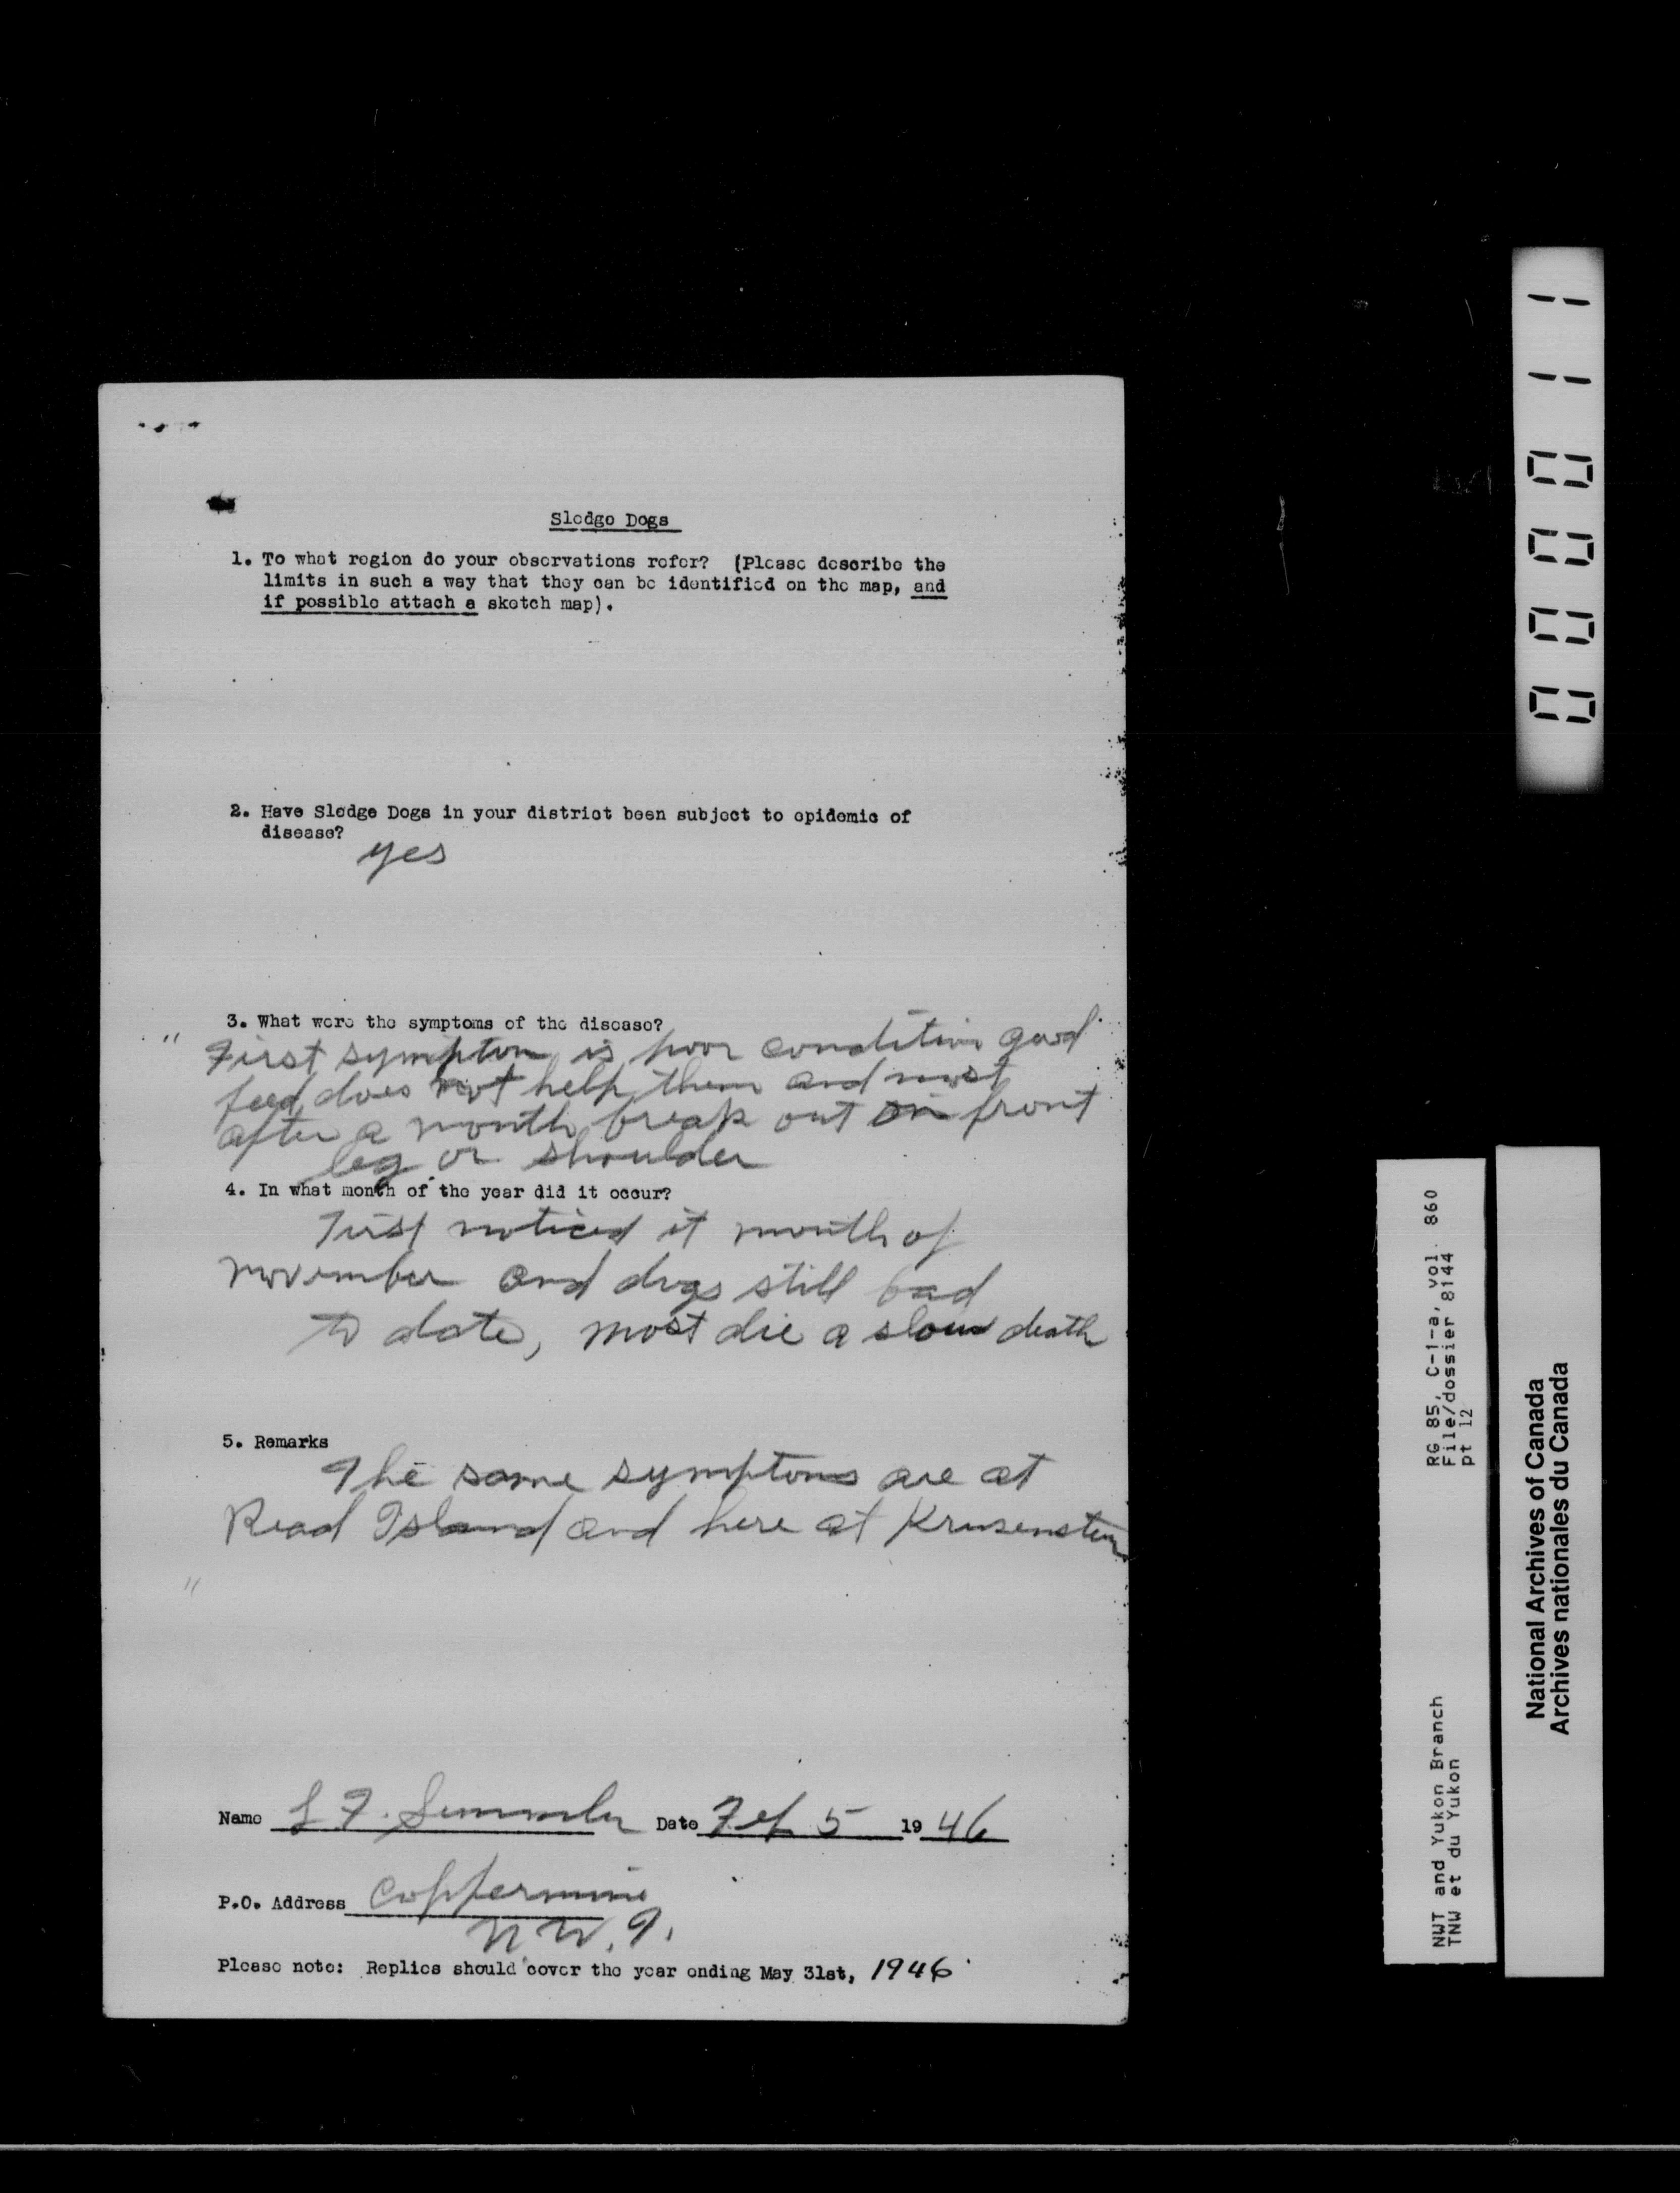 Sledge Dogs
1. To what region do your observations refer? (Please describe the
limits in such a way that they can be identified on the map, and
if possible attach a sketch map).
2. Have Sledge Dogs in your district been subject to epidemic of
disease?
yes
3. What were the symptoms of the disease?
" First symptom is poor condition good
feed does not help them and most
after a month break out on front
leg or shoulder
4. In what month of the year did it occur?
First noticed it month of
November and dogs still bad
to date, most die a slow death
5. Remarks
The same symptoms are at
Read Island and here at Krusenstern
"
Name L F. Semmler Date Feb 5 1946
P.O. Address Coppermine
N.W.T.
Please note: Replies should cover the year ending May 31st, 1946
000011
RG 85, C-1-a, vol. 860
File/dossier 8144
pt 12
NWT and Yukon Branch
TNW et du Yukon
National Archives of Canada
Archives nationales du Canada